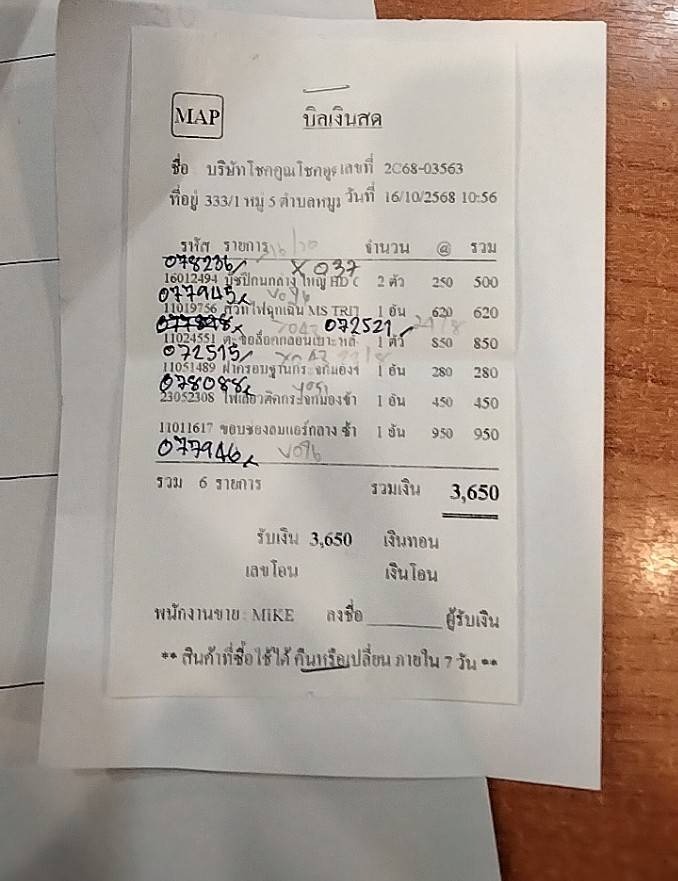 MAP
บิลเงินสด
ชื่อ บริษัทโชคคูณโชคอู เลขที่ 2C68-03563
ที่อยู่ 333/1 หมู่ 5 ตำบลหมู วันที่ 16/10/2568 10:56
รหัส รายการ จำนวน @ รวม
078236 X037
16012494 บู๊ชปีกนกล่าง ใหญ่ HD C 2 ตัว 250 500
077945 V096
11019756 สวิทไฟฉุกเฉิน MS TRIT 1 อัน 620 620
X043 072521
11024551 ตะขอล็อคกลอนเบาะ หลั 1 ตัว 850 850
072515 X043
11051489 ฝาครอบฐานกระจกมองข 1 อัน 280 280
078088 V051
23052308 ไฟเลี้ยวติดกระจกมองข้า 1 อัน 450 450
11011617 ขอบช่องลมแอร์กลาง ซ้า 1 อัน 950 950
077946 V096
รวม 6 รายการ รวมเงิน 3,650
รับเงิน 3,650 เงินทอน
เลขโอน เงินโอน
พนักงานขาย: MIKE ลงชื่อ________ ผู้รับเงิน
** สินค้าที่ซื้อไช้ได้ คืนหรือเปลี่ยน ภายใน 7 วัน **